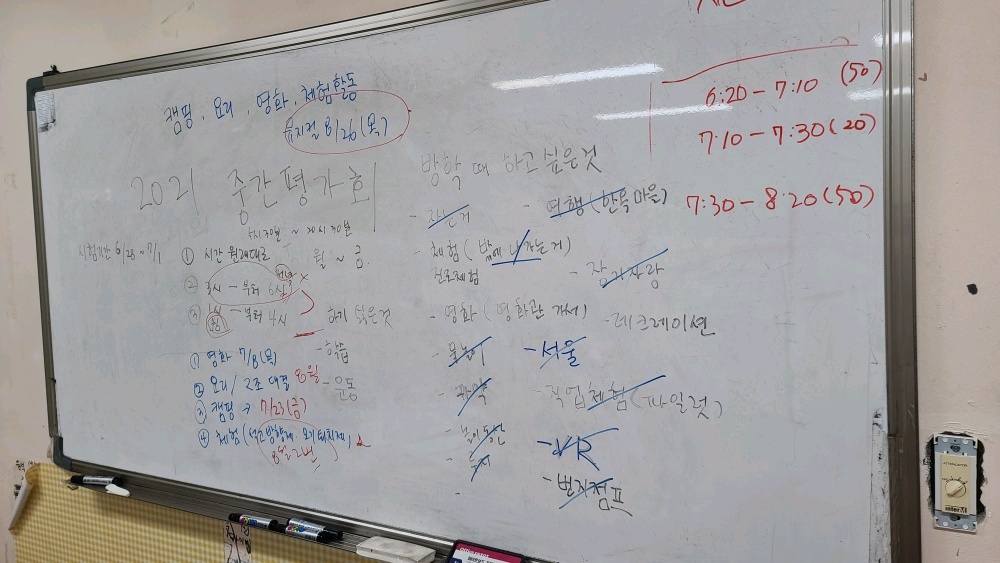 캠핑, 요리, 영화, 체험활동
뮤지컬 8/26(목)
6:20 - 7:10 (50)
7:10 - 7:30 (20)
7:30 - 8:20 (50)
2021 중간평가회
시험기간 6/28 ~ 7/1
① 시간 원래대로
월 ~ 금.
② 2시 - 부터 6시
③ 1시 - 부터 4시
하기 싫은것
- 학습
- 운동
① 영화 7/8(목)
② 요리/ 2조 대결 8월
③ 캠핑 → 7/23(금)
④ 체험
8월 2번
방학 때 하고 싶은것
- 자는거
- 여행 (한옥마을)
- 체험 (밖에 나가는거)
진로체험
- 장기자랑
- 영화 (영화관 가서)
- 레크레이션
- 물놀이
- 서울
- 직업체험 (파일럿)
- 놀이동산
- VR
- 번지점프
ATTENUATOR
inter-M